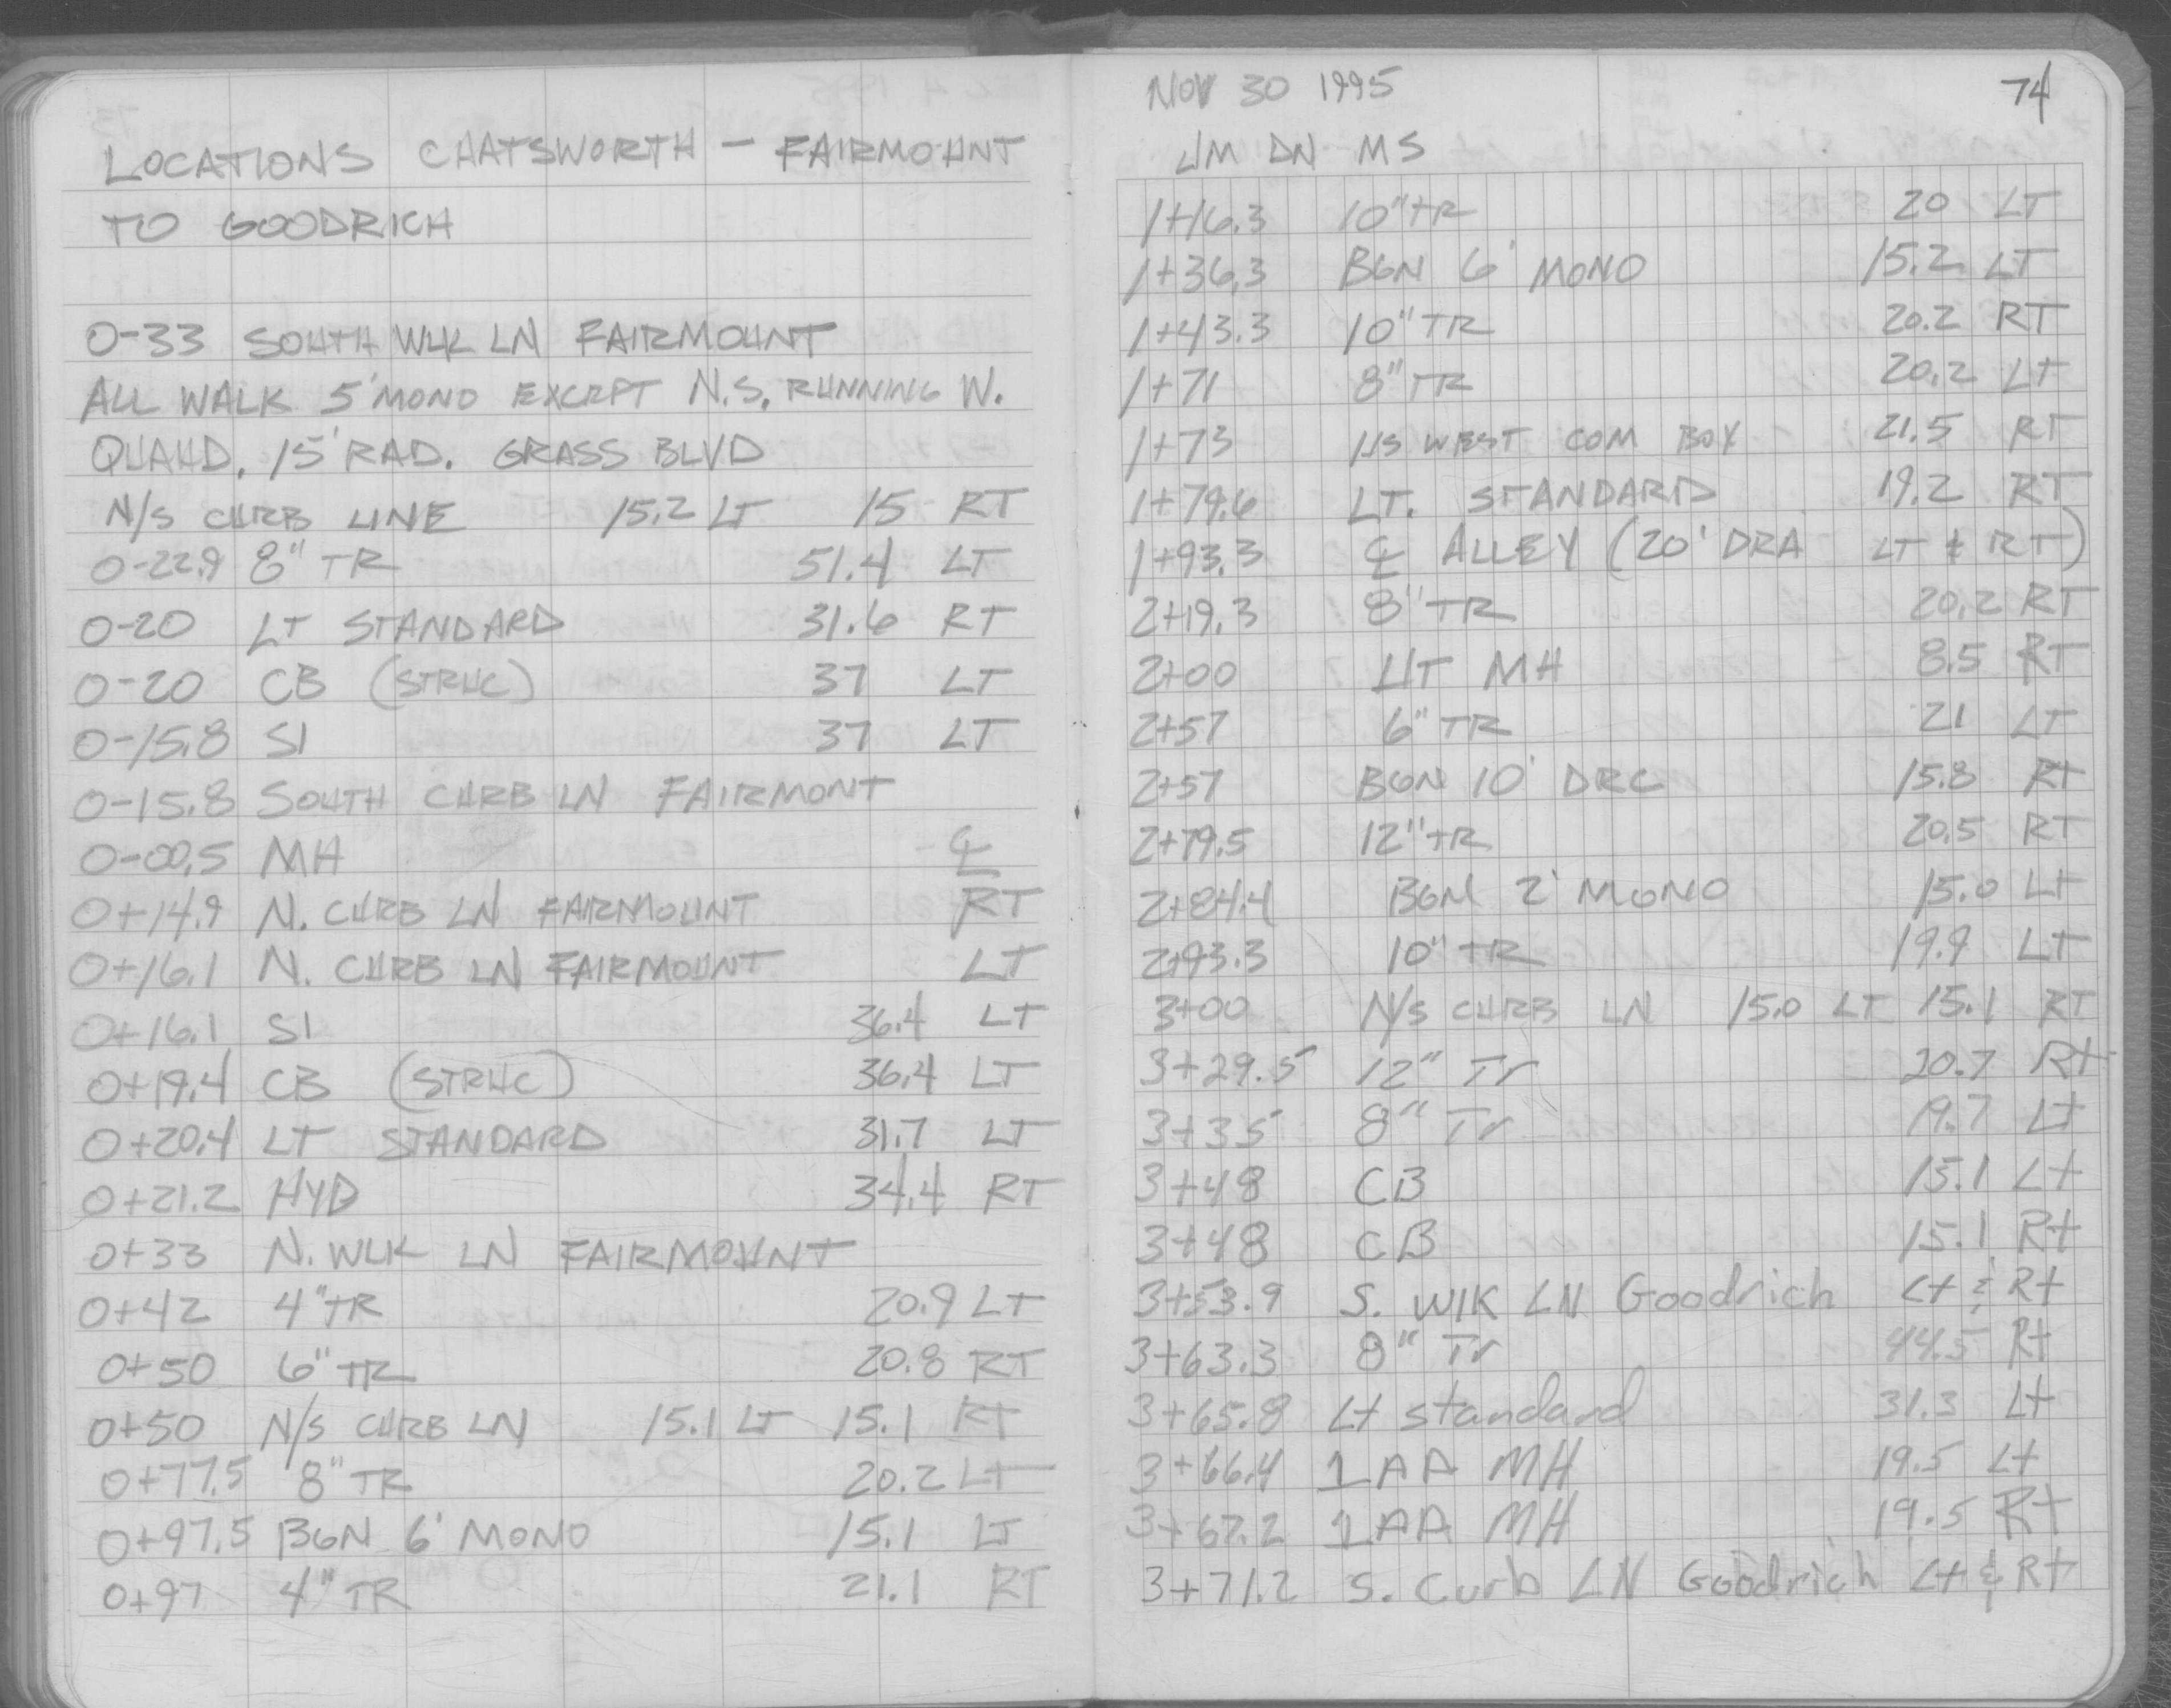 LOCATIONS CHATSWORTH - FAIRMOUNT
TO GOODRICH
0-33 SOUTH WLK LN FAIRMOUNT
ALL WALK 5' MONO EXCEPT N.S. RUNNING W.
QUAUD. 15' RAD. GRASS BLVD
N/S CURB LINE 15.2 LT 15 RT
0-22.9 8" TR 51.4 LT
0-20 LT STANDARD 31.6 RT
0-20 CB (STRUC) 37 LT
0-15.8 SI 37 LT
0-15.8 SOUTH CURB LN FAIRMONT
0-00.5 MH ℄
0+14.9 N. CURB LN FAIRMOUNT RT
0+16.1 N. CURB LN FAIRMOUNT LT
0+16.1 SI 36.4 LT
0+19.4 CB (STRUC) 36.4 LT
0+20.4 LT STANDARD 31.7 LT
0+21.2 HYD 34.4 RT
0+33 N. WLK LN FAIRMOUNT
0+42 4" TR 20.9 LT
0+50 6" TR 20.8 RT
0+50 N/S CURB LN 15.1 LT 15.1 RT
0+77.5 8" TR 20.2 LT
0+97.5 BGN 6' MONO 15.1 LT
0+97 4" TR 21.1 RT
NOV 30 1995 74
JM DN MS
1+16.3 10" TR 20 LT
1+36.3 BGN 6' MONO 15.2 LT
1+43.3 10" TR 20.2 RT
1+71 8" TR 20.2 LT
1+73 US WEST COM BOX 21.5 RT
1+79.6 LT. STANDARD 19.2 RT
1+93.3 ℄ ALLEY (20' DRA LT & RT)
2+19.3 8" TR 20.2 RT
2+00 UT MH 8.5 RT
2+57 6" TR 21 LT
2+57 BGN 10' DRC 15.8 RT
2+79.5 12" TR 20.5 RT
2+84.4 BGN 2' MONO 15.0 LT
2+93.3 10" TR 19.9 LT
3+00 N/S CURB LN 15.0 LT 15.1 RT
3+29.5 12" Tr 20.7 Rt
3+35 8" Tr 19.7 Lt
3+48 CB 15.1 Lt
3+48 CB 15.1 Rt
3+53.9 S. WlK LN Goodrich Lt & Rt
3+63.3 8" Tr 44.5 Rt
3+65.8 Lt standard 31.3 Lt
3+66.4 1AA MH 19.5 Lt
3+67.2 1AA MH 19.5 Rt
3+71.2 S. Curb LN Goodrich Lt & Rt